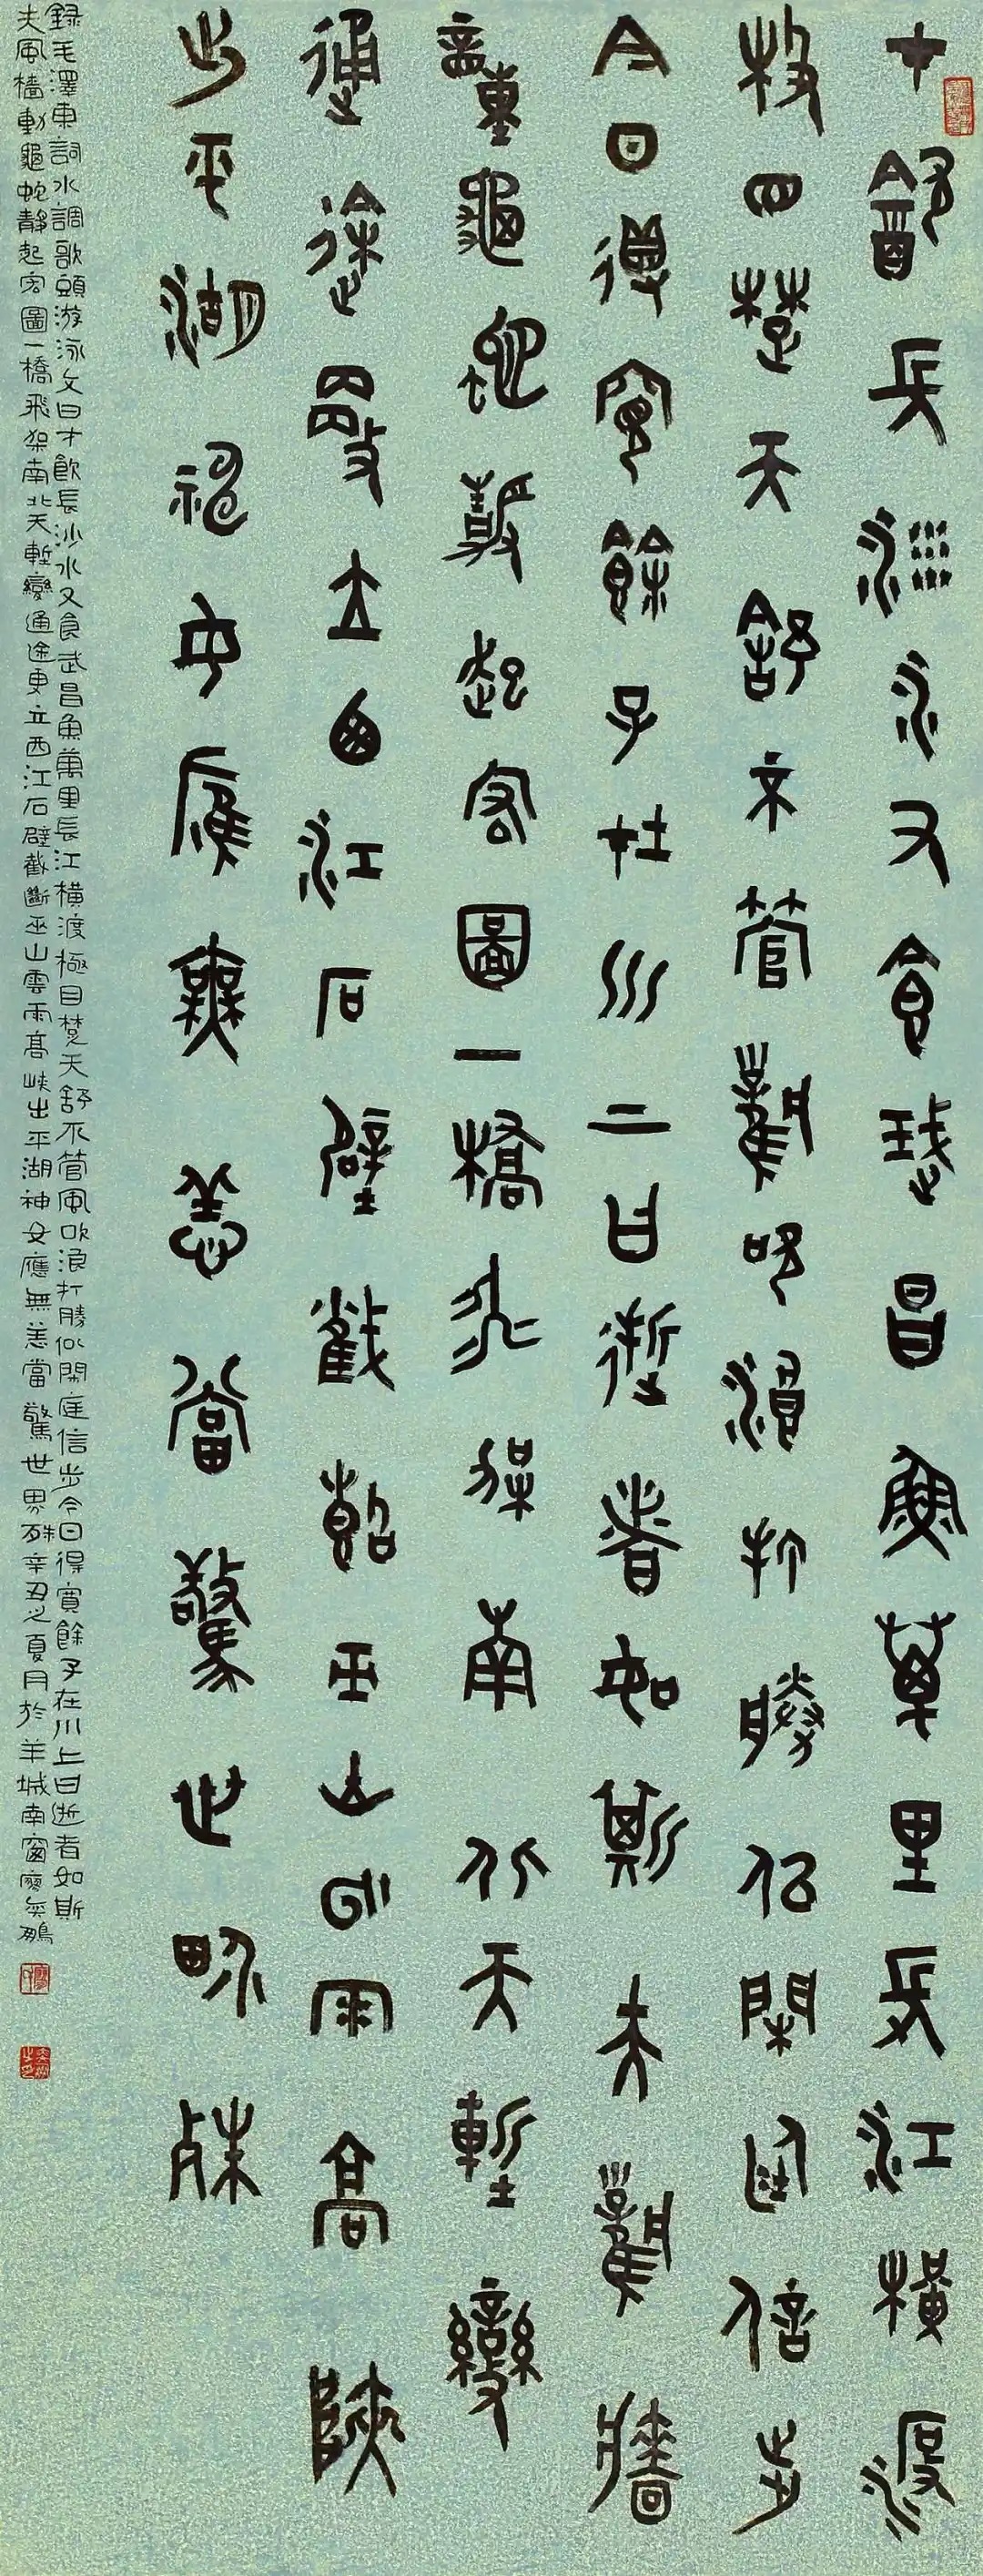 才飲長沙水又食武昌魚萬里長江橫渡
極目楚天舒不管風吹浪打勝似閒庭信步
今日得寬餘子在川上曰逝者如斯夫風檣
動龜蛇靜起宏圖一橋飛架南北天塹變
通途更立西江石壁截斷巫山雲雨高峽
出平湖神女應無恙當驚世界殊
錄毛澤東詞水調歌頭游泳文曰才飲長沙水又食武昌魚萬里長江橫渡極目楚天舒不管風吹浪打勝似閒庭信步今日得寬餘子在川上曰逝者如斯
夫風檣動龜蛇靜起宏圖一橋飛架南北天塹變通途更立西江石壁截斷巫山雲雨高峽出平湖神女應無恙當驚世界殊辛丑之夏月於羊城南窗廖奕鵬